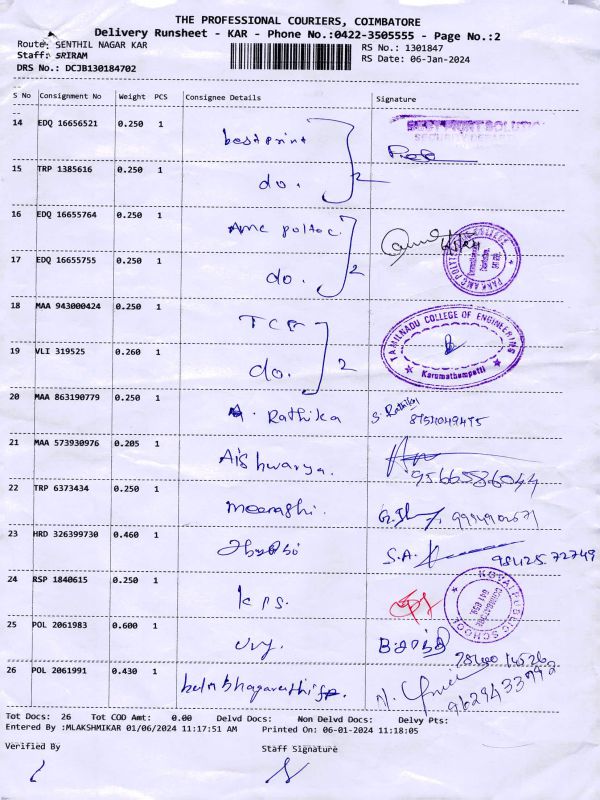 THE PROFESSIONAL COURIERS, COIMBATORE
Delivery Runsheet - KAR - Phone No.:0422-3505555 - Page No.:2
Route: SENTHIL NAGAR KAR
RS No.: 1301847
Staff: SRIRAM
RS Date: 06-Jan-2024
DRS No.: DCJB130184702
S No Consignment No Weight PCS Consignee Details Signature
14 EDQ 16656521 0.250 1 bestprint
15 TRP 1385616 0.250 1 do. 2
16 EDQ 16655764 0.250 1 Amc poltec.
17 EDQ 16655755 0.250 1 do. 2
18 MAA 943000424 0.250 1 TCE
TAMILNADU COLLEGE OF ENGINEERING
Karumathampatti
19 VLI 319525 0.260 1 do. 2
20 MAA 863190779 0.250 1 Rathika S. Rathika
21 MAA 573930976 0.205 1 Aishwarya. 9566586044
22 TRP 6373434 0.250 1 meenashi.
23 HRD 326399730 0.460 1 S.A.
24 RSP 1840615 0.250 1 kps.
KOVAI PUBLIC SCHOOL
COIMBATORE
25 POL 2061983 0.600 1
26 POL 2061991 0.430 1 N. 9629433992
Tot Docs: 26 Tot COD Amt: 0.00 Delvd Docs: Non Delvd Docs: Delvy Pts:
Entered By :MLAKSHMIKAR 01/06/2024 11:17:51 AM Printed On: 06-01-2024 11:18:05
Verified By Staff Signature